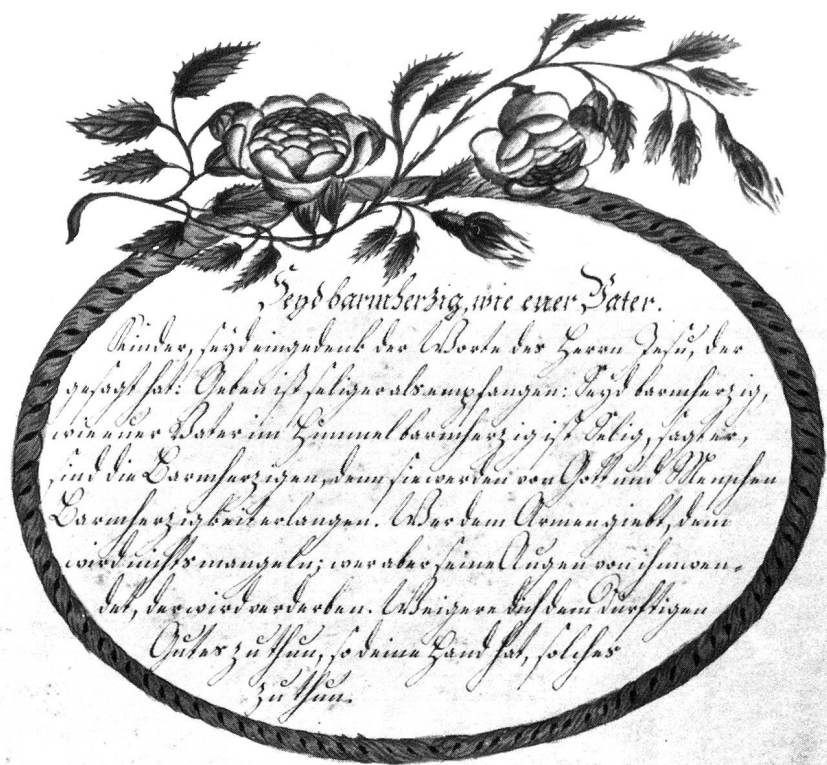 Seyd barmherzig, wie euer Vater.
Kinder, seyd eingedenk der Worte des Herrn Jesu, der
gesagt hat: Geben ist seliger als empfangen: Seyd barmherzig,
wie euer Vater im Himmel barmherzig ist. Selig, sagt er,
sind die Barmherzigen, denn sie werden von Gott und Menschen
Barmherzigkeit erlangen. Wer dem Armen giebt, dem
wird nichts mangeln; wer aber seine Augen von ihm wen-
det, der wird verderben. Weigere dich dem Dürftigen
Gutes zu thun, so deine Hand hat, solches
zu thun.